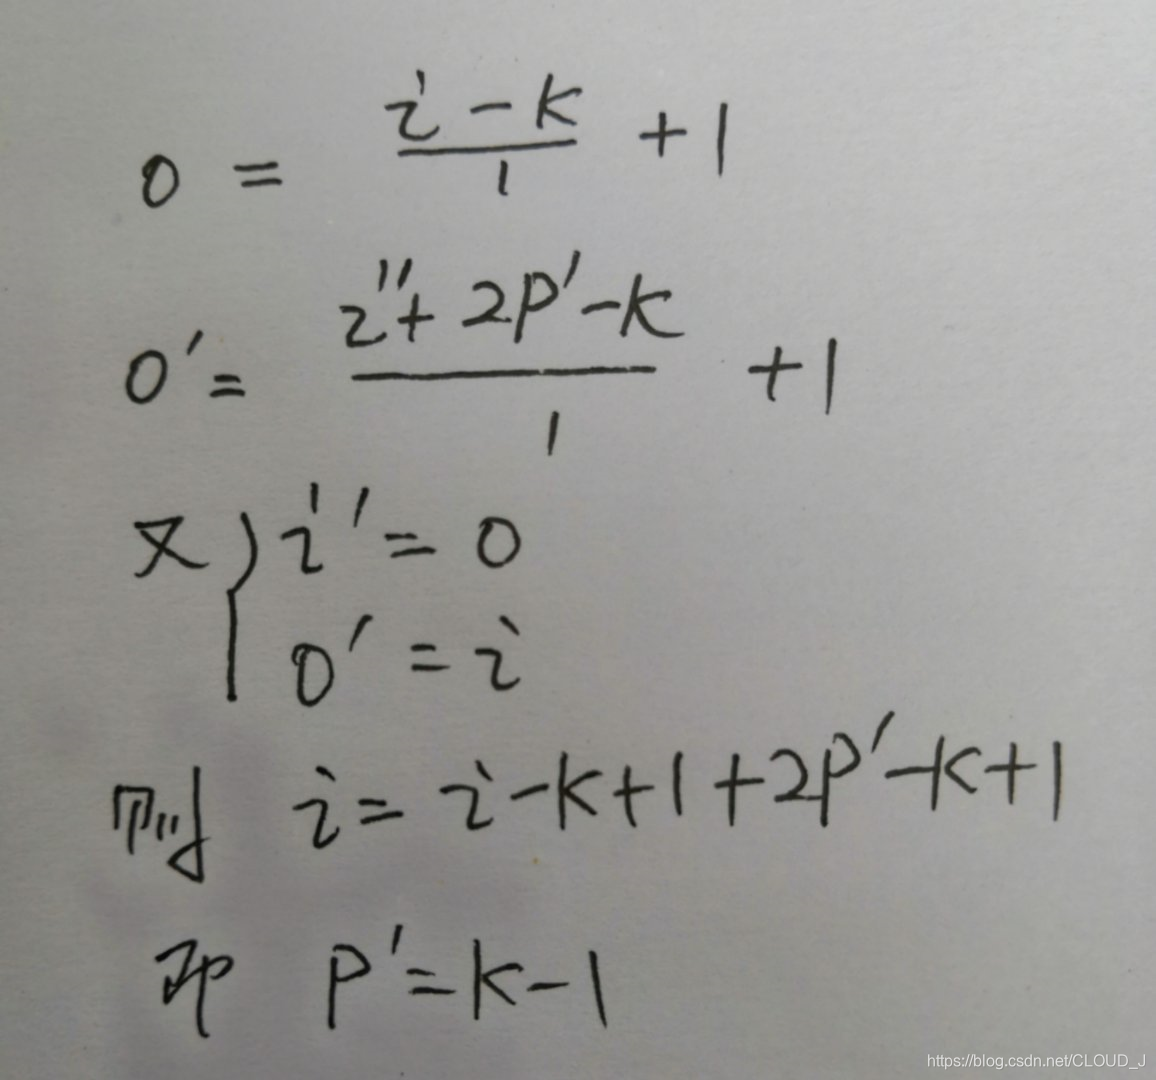 o = (i - k)/1 + 1
o' = (i'' + 2p' - k)/1 + 1
又 { i' = o
o' = i
则 i = i - k + 1 + 2p' - k + 1
即 p' = k - 1
https://blog.csdn.net/CLOUD_J